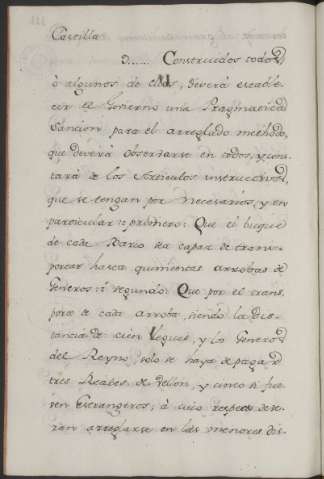 Castilla
Construidos todos,
ò algunos de ellos, deverá estable-
cer el Govierno una Pragmatica
Sancion para el arreglado methodo,
que deverá observarse en todos, y cons-
tará de los Articulos instructivos,
que se tengan por necesarios, y en
particular: primero: Que el buque
de cada Barco sea capaz de trans-
portar hasta quinientas arrobas de
Generos: segundo: Que por el trans-
porte de cada arroba, siendo la dis-
tancia de cien leguas, y los Generos
del Reyno, solo se haya de pagar
tres Reales de vellon, y cinco si fue-
sen Estrangeros; à cuio respecto deve-
rian arreglarse en las menores dis-